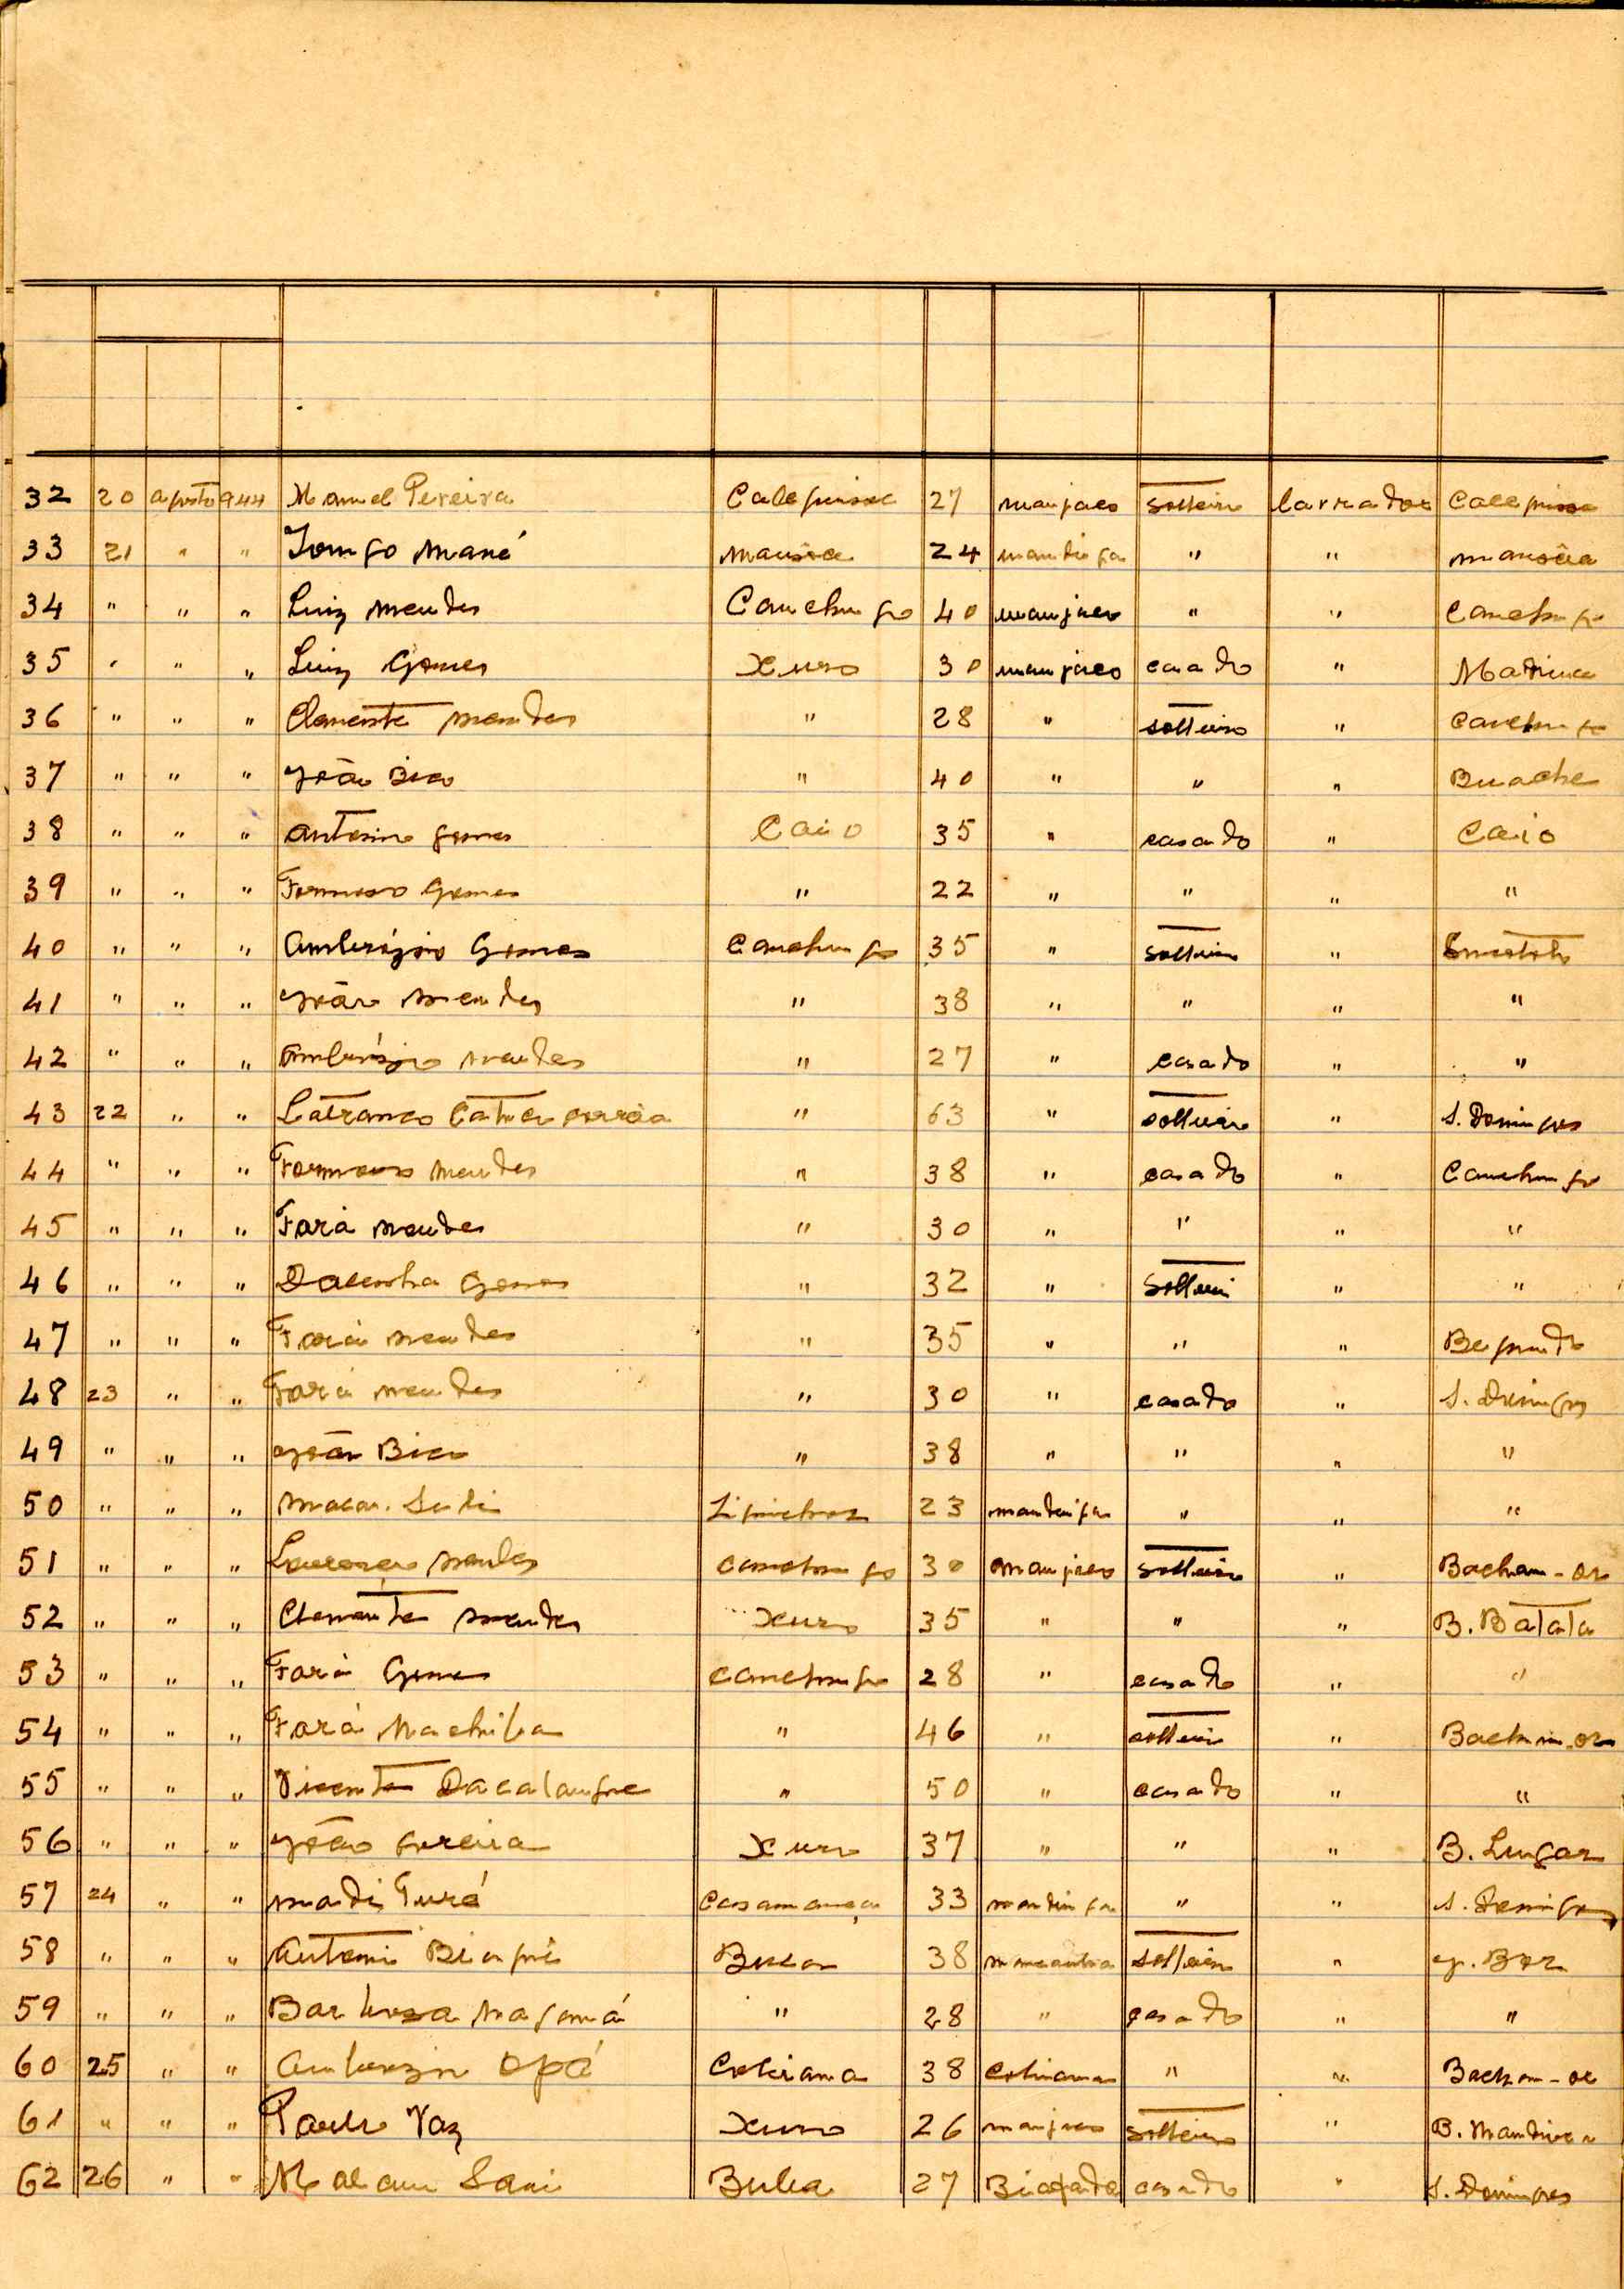 32 20 agosto 944 Manuel Pereira Calequisse 27 manjaco solteiro lavrador Calequisse
33 21 " " Jongo Mané mansôa 24 mandiga " " mansôa
34 " " " Luiz mendes Canchungo 40 manjaco " " Canchungo
35 " " " Luiz Gomes Xuro 30 manjaco casado " Madina
36 " " " Clemente mendes " 28 " solteiro " Canchungo
37 " " " João Bico " 40 " " " Buache
38 " " " antonio gomes Caio 35 " casado " Caio
39 " " " Formoso Gomes " 22 " " " "
40 " " " ambrózio Gomes Canchungo 35 " solteiro "
41 " " " João mendes " 38 " " " "
42 " " " ambrózio mendes " 27 " casado " "
43 22 " " " 63 " solteiro " S. Domingos
44 " " " Formoso mendes " 38 " casado " Canchungo
45 " " " Fará mendes " 30 " " " "
46 " " " Dacunha Gomes " 32 " Solteiro " "
47 " " " Fará mendes " 35 " " "
48 23 " " Fará mendes " 30 " casado " S. Domingos
49 " " " João Bico " 38 " " " "
50 " " " 23 mandinga " " "
51 " " " Lourenço mendes canchungo 30 manjaco solteiro "
52 " " " Clemente mendes xuro 35 " " " B. Batata
53 " " " Fará Gomes canchungo 28 " casado " "
54 " " " Fará " 46 " solteiro "
55 " " " Vicente Dacalangue " 50 " casado " "
56 " " " João Pereira Xuro 37 " " " B. Lugar
57 24 " " madi Turé Casamança 33 mandinga " " S. Domingos
58 " " " Antoni 38 solteiro "
59 " " " Barbosa " 28 " casado " "
60 25 " " Ambrozio Opá Coliana 38 "
61 " " " Paulo Vaz Xuro 26 manjaco solteiro "
62 26 " " Malam Sani Buba 27 Biafada casado " S. Domingos